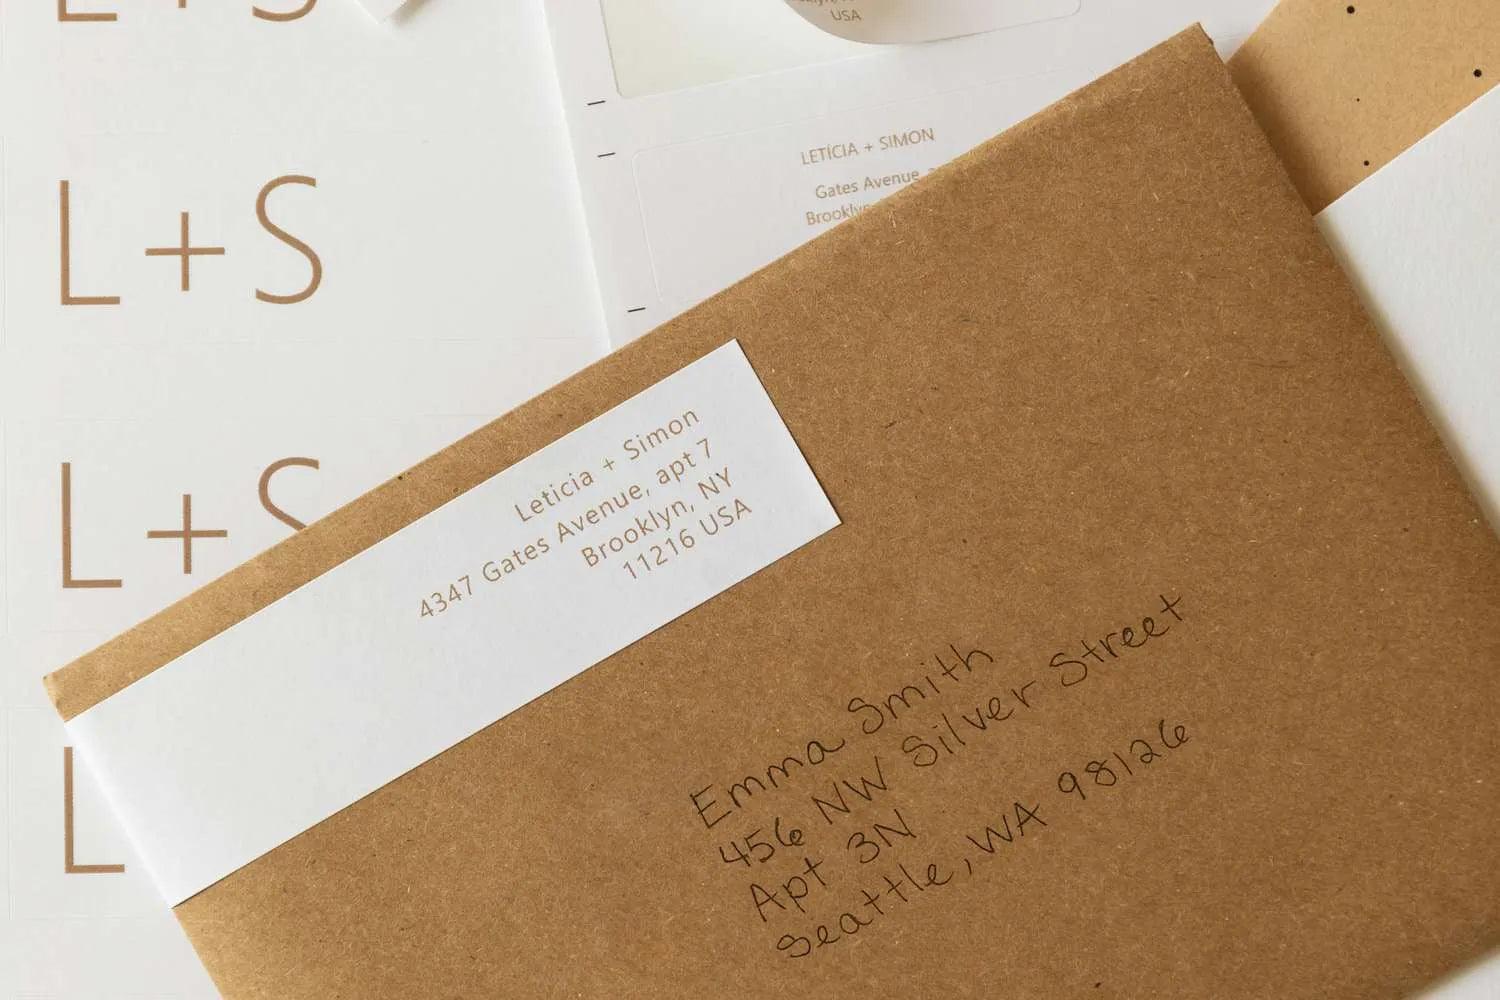 L+S
USA
LETÍCIA + SIMON
Gates Avenue,
Brooklyn
L+S
L+S
L
Leticia + Simon
4347 Gates Avenue, apt 7
Brooklyn, NY
11216 USA
Emma Smith
456 NW Silver Street
Apt 3N
Seattle, WA 98126